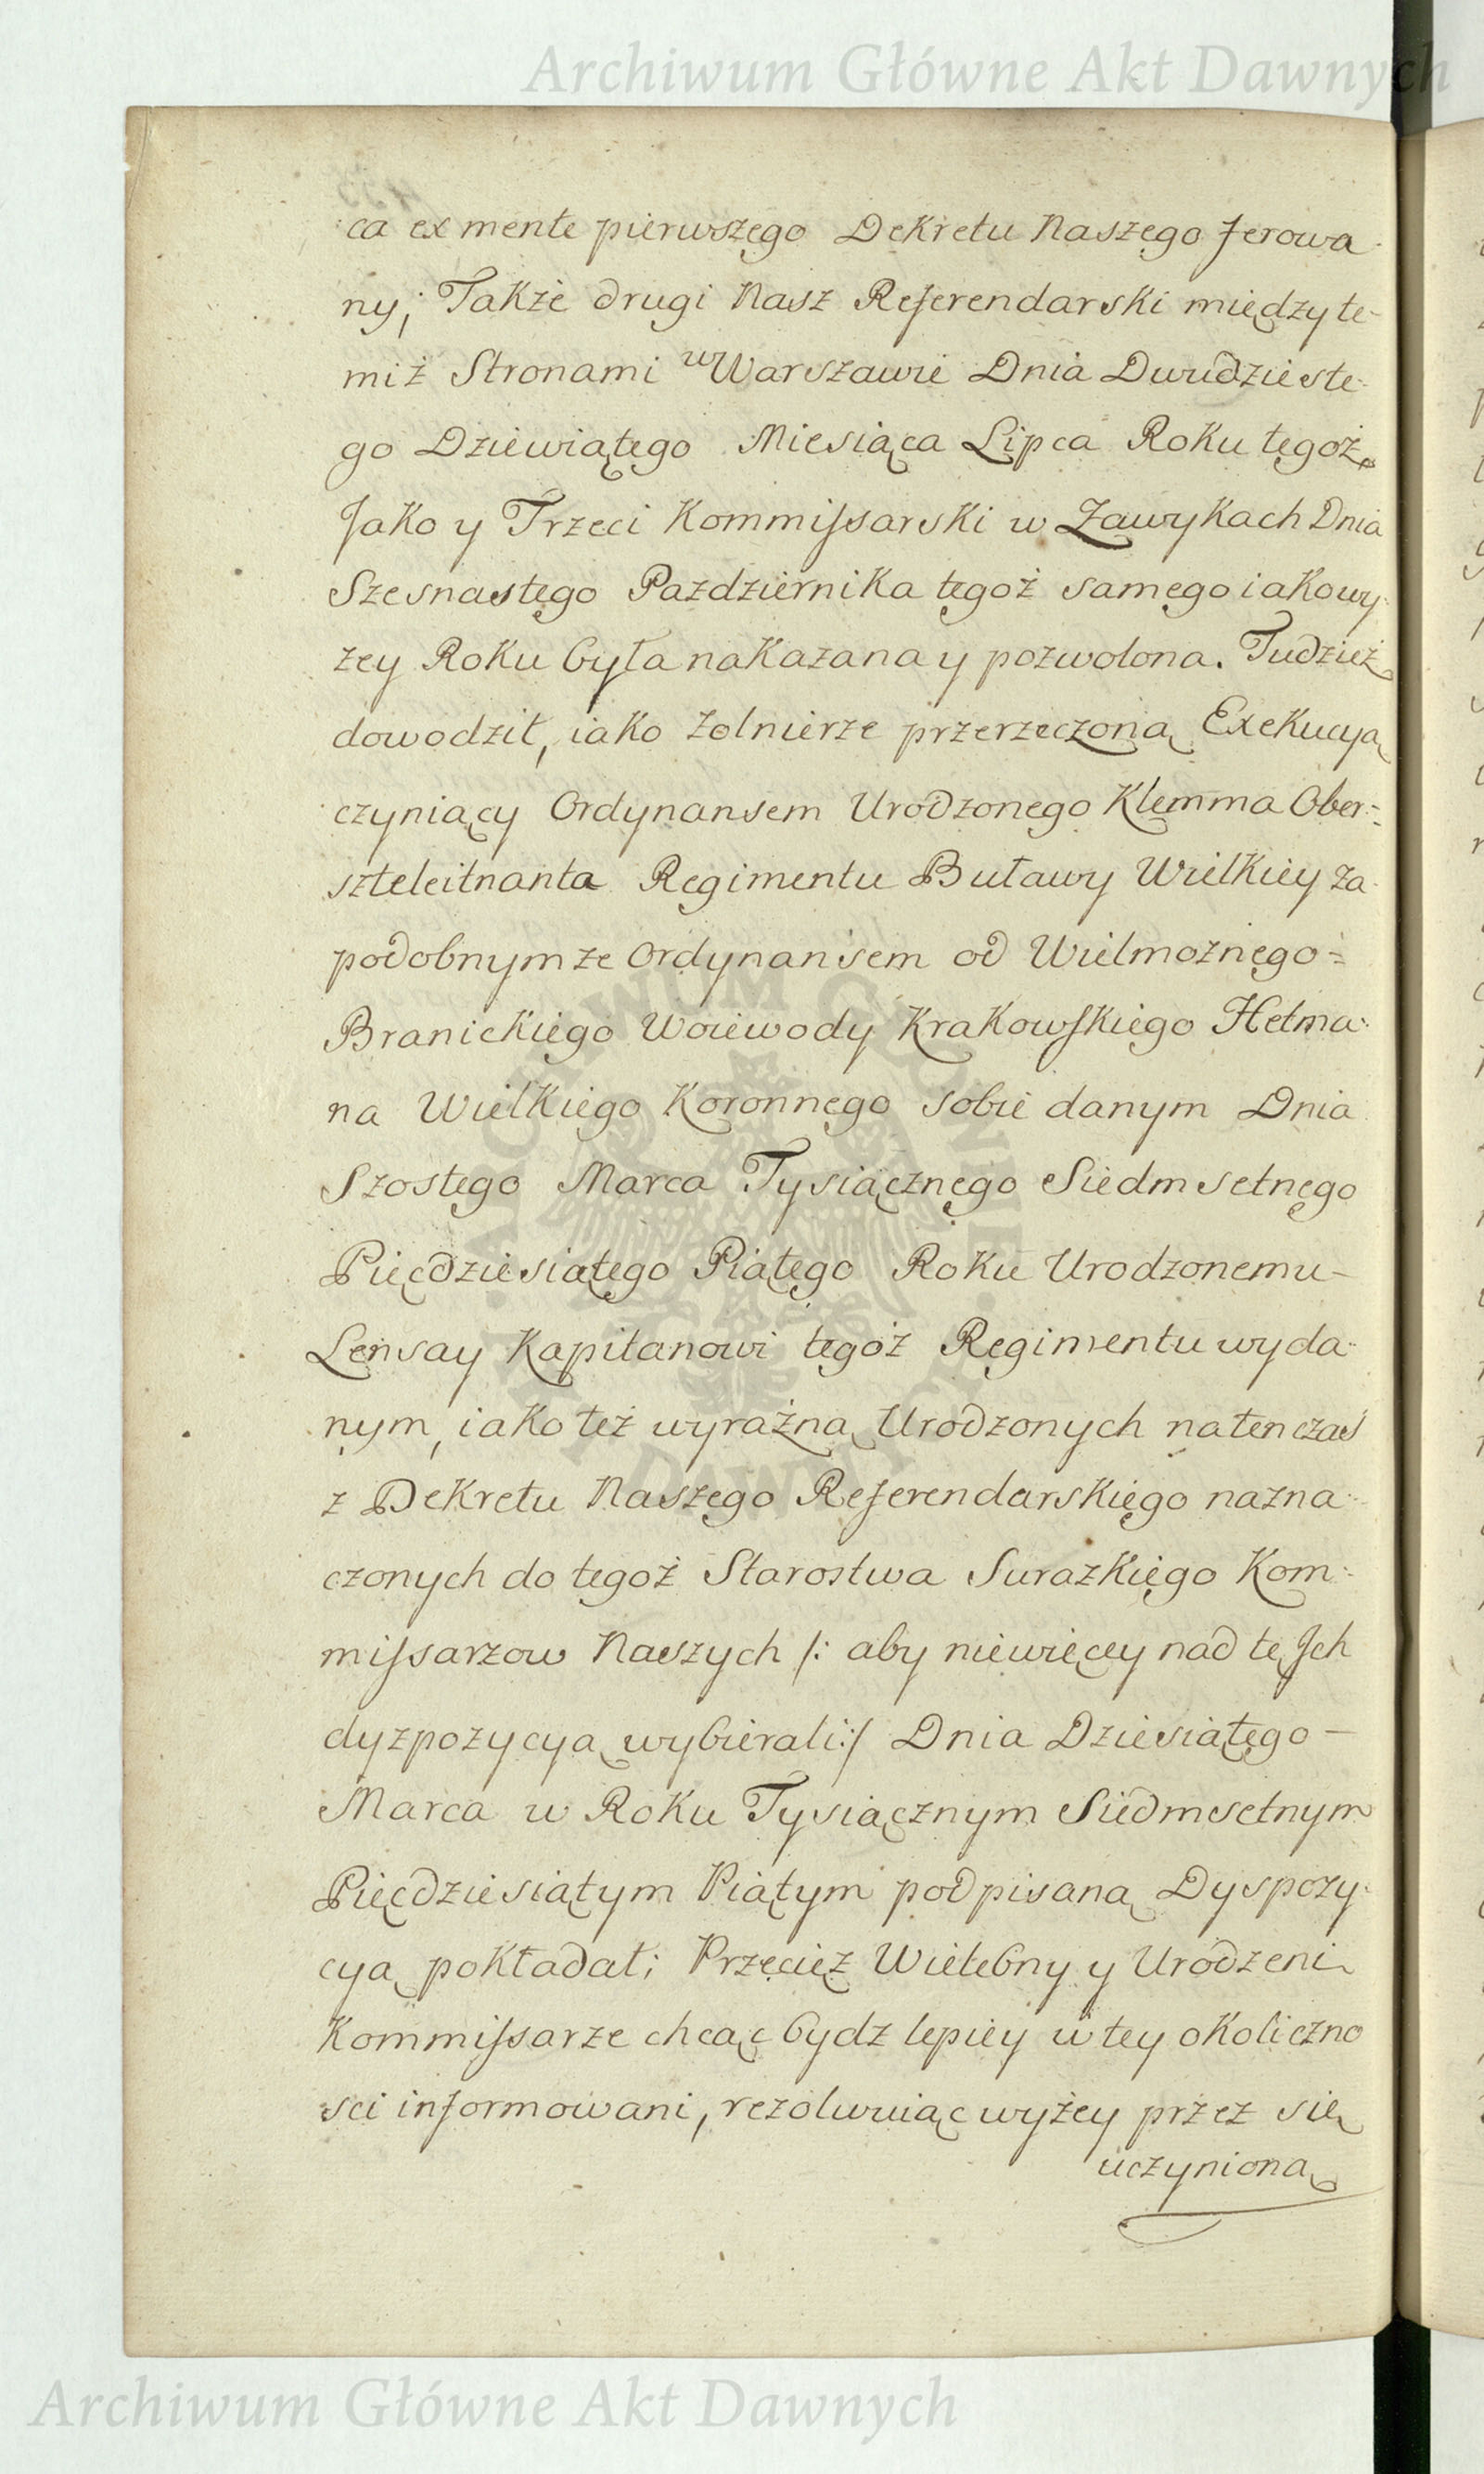 Archiwum Główne Akt Dawnych
ca ex mente pierwszego Dekretu Naszego ferowa-
ny; Także drugi Nasz Referendarski między te-
miż Stronami w Warszawie Dnia Dwudzieste-
go Dziewiątego Miesiąca Lipca Roku tegoż
Jako y Trzeci Kommissarski w Zawykach Dnia
Szesnastego Pazdziernika tegoż samego iakowy-
zey Roku była nakazana y pozwolona. Tudzież
dowodził, iako żołnierze przerzeczoną Exekucyą
czyniący Ordynansem Urodzonego Klemma Ober-
szteleitnanta Regimentu Buławy Wielkiey za
podobnymze Ordynansem od Wielmożnego
Branickiego Woiewody Krakowskiego Hetma-
na Wielkiego Koronnego sobie danym Dnia
Szostego Marca Tysiącznego Siedmsetnego
Pięcdziesiątego Piątego Roku Urodzonemu-
Lensay Kapitanowi tegoż Regimentu wyda-
nym, iako też wyraźną Urodzonych natenczas
z Dekretu Naszego Referendarskiego nazna-
czonych do tegoż Starostwa Surazkiego Kom-
missarzow Naszych /: aby niewięcey nad tę Jch
dyzpozycyą wybierali:/ Dnia Dziesiątego —
Marca w Roku Tysiącznym Siedmsetnym
Pięcdziesiątym Piątym podpisaną Dyspozy-
cyą pokładał; Przecież Wielebny y Urodzeni
Kommissarze chcąc bydz lepiey w tey okoliczno
sci informowani, rezolwuiąc wyżey przez się
uczynioną
ARCHIWUM GŁÓWNE AKT DAWNYCH
Archiwum Główne Akt Dawnych